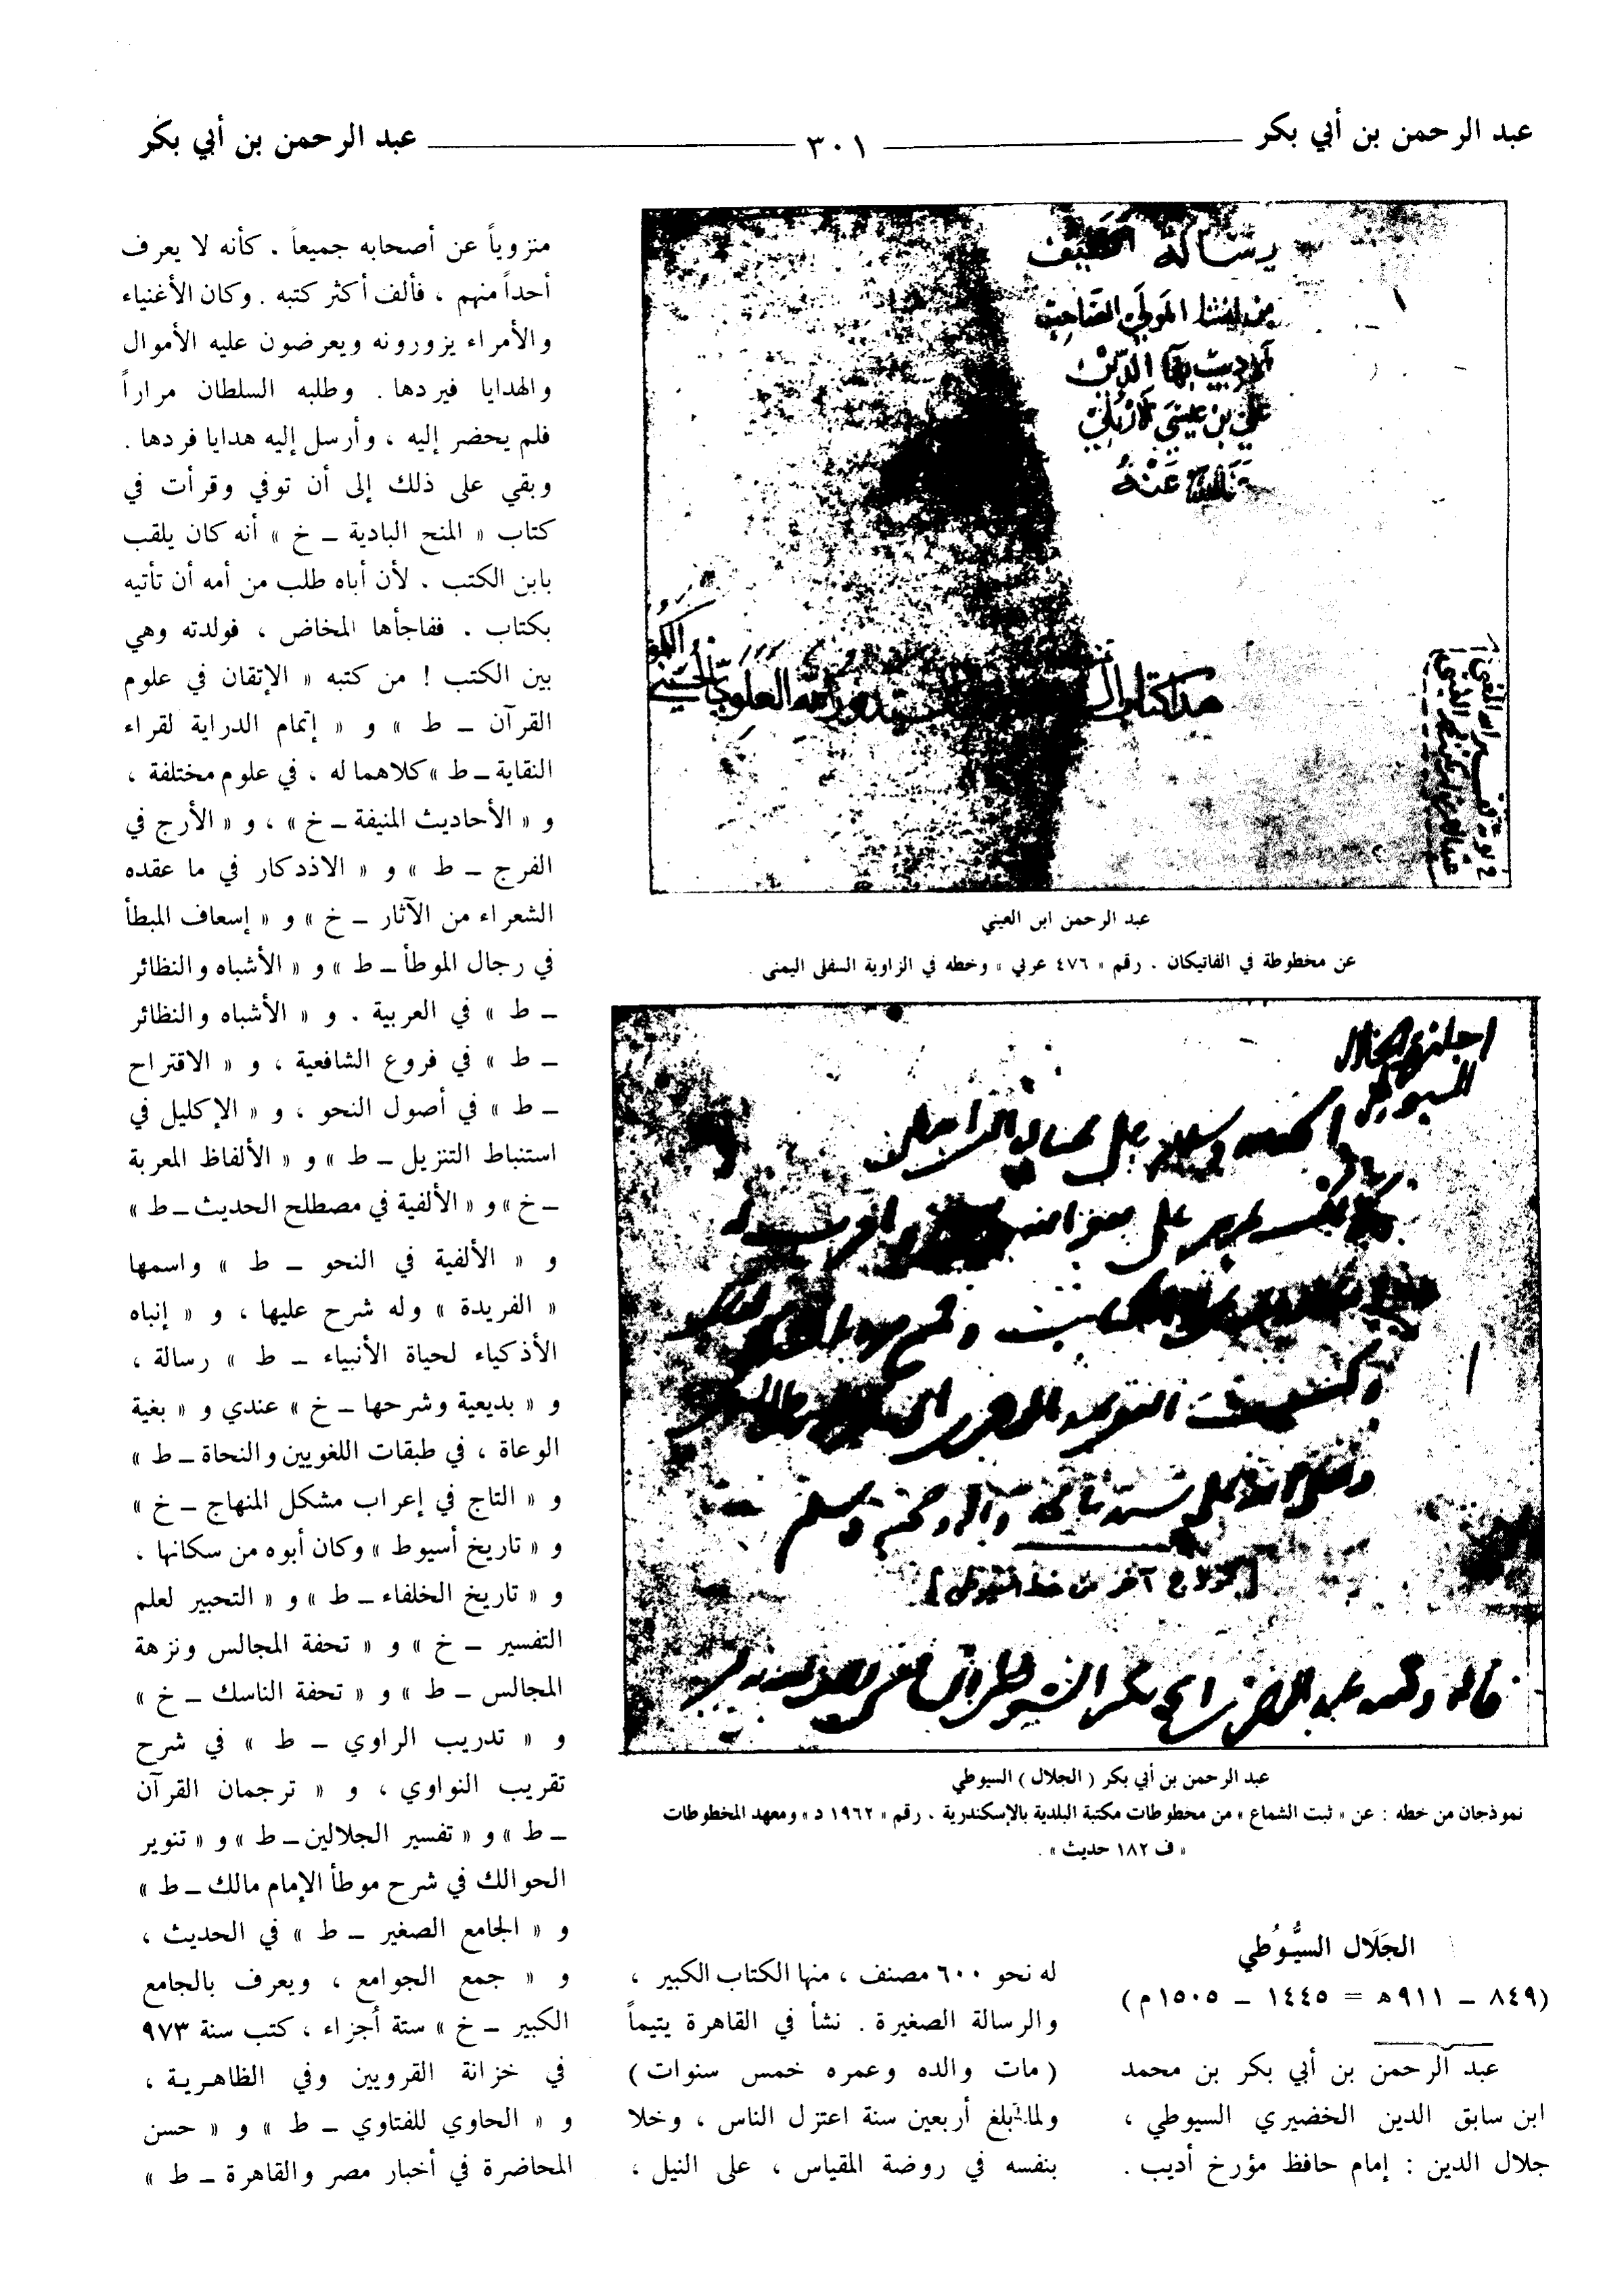 عبد الرحمن بن أبي بكر
٣٠١
عبد الرحمن بن أبي بكر
رسالة الطيف
من إنشاء المولى الصاحب
بهاء الدين
علي بن عيسى
عنه
هذا كتاب
العلوي الحسيني
عبد الرحمن ابن العيني
عن مخطوطة في الفاتيكان . رقم « ٤٧٦ عربي » وخطه في الزاوية السفلى اليمنى .
السيوطي
[نموذج آخر من خط السيوطي]
عبد الرحمن بن أبي بكر السيوطي
عبد الرحمن بن أبي بكر ( الجلال ) السيوطي
نموذجان من خطه : عن « ثبت الشماع » من مخطوطات مكتبة البلدية بالإسكندرية . رقم « ١٩٦٢ د » ومعهد المخطوطات
« ف ١٨٢ حديث » .
الجَلَال السيُّوُطي
(٨٤٩ – ٩١١ هـ = ١٤٤٥ – ١٥٠٥ م)
عبد الرحمن بن أبي بكر بن محمد
ابن سابق الدين الخضيري السيوطي ،
جلال الدين : إمام حافظ مؤرخ أديب .
له نحو ٦٠٠ مصنف ، منها الكتاب الكبير ،
والرسالة الصغيرة . نشأ في القاهرة يتيماً
( مات والده وعمره خمس سنوات )
ولما بلغ أربعين سنة اعتزل الناس ، وخلا
بنفسه في روضة المقياس ، على النيل ،
منزوياً عن أصحابه جميعاً . كأنه لا يعرف
أحداً منهم ، فألف أكثر كتبه . وكان الأغنياء
والأمراء يزورونه ويعرضون عليه الأموال
والهدايا فيردها . وطلبه السلطان مراراً
فلم يحضر إليه ، وأرسل إليه هدايا فردها .
وبقي على ذلك إلى أن توفي وقرأت في
كتاب « المنح البادية – خ » أنه كان يلقب
بابن الكتب . لأن أباه طلب من أمه أن تأتيه
بكتاب . ففاجأها المخاض ، فولدته وهي
بين الكتب ! من كتبه « الإتقان في علوم
القرآن – ط » و « إتمام الدراية لقراء
النقاية – ط » كلاهما له ، في علوم مختلفة ،
و « الأحاديث المنيفة – خ » ، و « الأرج في
الفرج – ط » و « الاذدكار في ما عقده
الشعراء من الآثار – خ » و « إسعاف المبطأ
في رجال الموطأ – ط » و « الأشباه والنظائر
– ط » في العربية . و « الأشباه والنظائر
– ط » في فروع الشافعية ، و « الاقتراح
– ط » في أصول النحو ، و « الإكليل في
استنباط التنزيل – ط » و « الألفاظ المعربة
– خ » و « الألفية في مصطلح الحديث – ط »
و « الألفية في النحو – ط » واسمها
« الفريدة » وله شرح عليها ، و « إنباه
الأذكياء لحياة الأنبياء – ط » رسالة ،
و « بديعية وشرحها – خ » عندي و « بغية
الوعاة ، في طبقات اللغويين والنحاة – ط »
و « التاج في إعراب مشكل المنهاج – خ »
و « تاريخ أسيوط » وكان أبوه من سكانها ،
و « تاريخ الخلفاء – ط » و « التحبير لعلم
التفسير – خ » و « تحفة المجالس ونزهة
المجالس – ط » و « تحفة الناسك – خ »
و « تدريب الراوي – ط » في شرح
تقريب النواوي ، و « ترجمان القرآن
– ط » و « تفسير الجلالين – ط » و « تنوير
الحوالك في شرح موطأ الإمام مالك – ط »
و « الجامع الصغير – ط » في الحديث ،
و « جمع الجوامع ، ويعرف بالجامع
الكبير – خ » ستة أجزاء ، كتب سنة ٩٧٣
في خزانة القرويين وفي الظاهرية ،
و « الحاوي للفتاوي – ط » و « حسن
المحاضرة في أخبار مصر والقاهرة – ط »